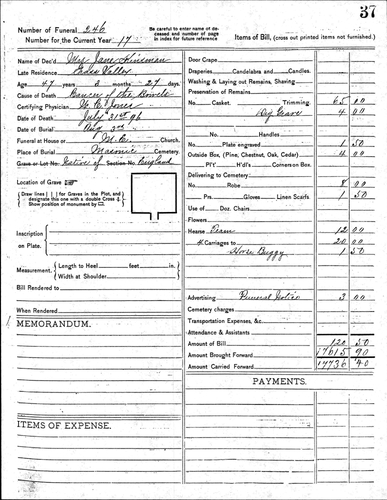 37
Number of Funeral 246
Number for the Current Year 17
Be careful to enter name of deceased and number of page in index for future reference
Items of Bill, (cross out printed items not furnished.)
Name of Dec'd Mrs Jane Kinsman
Late Residence Valley
Age, 47 years 2 months 27 days.
Cause of Death Cancer of the Bowels
Certifying Physician W. C. Jones
Date of Death July 31st 96
Date of Burial Aug 3rd
Funeral at House or M.E. Church.
Place of Burial Masonic Cemetery.
Grave or Lot No. Native of Section No. England
Location of Grave
Draw lines | | for Graves in the Plot, and designate this one with a double Cross
Show position of monument by
Inscription on Plate.
Measurement. Length to Heel feet in.
Width at Shoulder
Bill Rendered
When Rendered
MEMORANDUM.
ITEMS OF EXPENSE.
Door Crape
Draperies Candelabra and Candles.
Washing & Laying out Remains, Shaving
Preservation of Remains
No. Casket. Trimming 65 00
Dig Grave 4 00
No. Handles
No. Plate engraved 1 50
Outside Box, (Pine, Chestnut, Oak, Cedar) 4 00
P'l'y H'd'l's Cornerson Box.
Delivering to Cemetery
No. Robe 8 00
Prs. Gloves Linen Scarfs 1 50
Use of Doz. Chairs
Flowers
Hearse Team 12 00
4 Carriages to 20 00
Horse Buggy 1 50
Advertising Funeral Notice 3 00
Cemetery charges
Transportation Expenses, &c.
Attendance & Assistants
Amount of Bill 120 50
Amount Brought Forward 17615 90
Amount Carried Forward 17736 40
PAYMENTS.